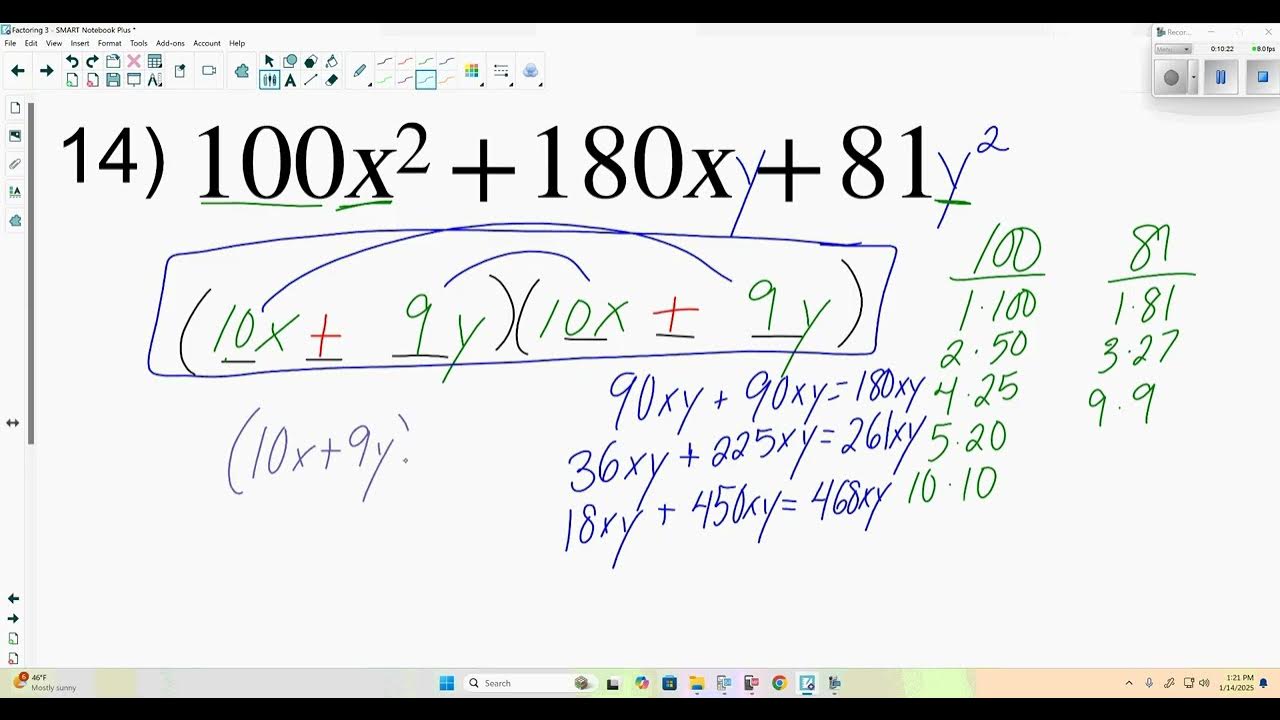 Factoring 3 - SMART Notebook Plus *
File Edit View Insert Format Tools Add-ons Account Help
Recor...
Menu
0:10:22
8.0fps
14) 100x² + 180xy + 81y²
(10x + 9y)(10x + 9y)
100
1·100
2·50
4·25
5·20
10·10
81
1·81
3·27
9·9
90xy + 90xy = 180xy
36xy + 225xy = 261xy
18xy + 450xy = 468xy
(10x+9y)
6
46°F
Mostly sunny
Search
1:21 PM
1/14/2025